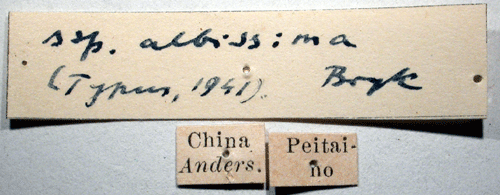 ssp. albissima
(Typus, 1941). Bryk
China
Anders.
Peitai-
no